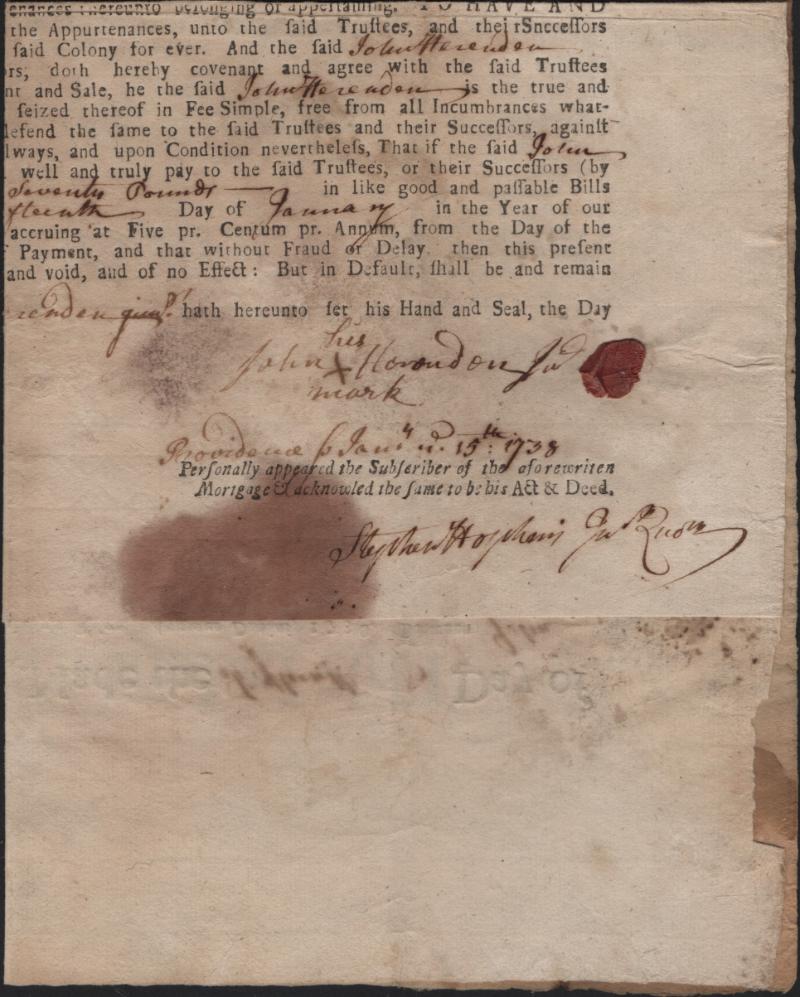 enances thereunto belonging or appertaining. TO HAVE AND
the Appurtenances, unto the ſaid Truſtees, and thei rSncceſſors
ſaid Colony for ever. And the ſaid John Herenden
rs, doth hereby covenant and agree with the ſaid Truſtees
nt and Sale, he the ſaid John Herenden is the true and
ſeized thereof in Fee Simple, free from all Incumbrances what-
defend the ſame to the ſaid Truſtees and their Succeſſors, againſt
lways, and upon Condition nevertheleſs, That if the ſaid John
well and truly pay to the ſaid Truſtees, or their Succeſſors (by
Seventy Pounds in like good and paſſable Bills
fteenth Day of January in the Year of our
accruing at Five pr. Centum pr. Annum, from the Day of the
Payment, and that without Fraud or Delay. then this preſent
and void, aud of no Effect: But in Default, ſhall be and remain
renden hath hereunto ſet his Hand and Seal, the Day
his
John X Herenden Jur
mark
Providence ſs Janry ye. 15th: 1738
Perſonally appeared the Subſcriber of the aforewriten
Mortgage & acknowled the ſame to be his Act & Deed,
Stephen Hopkins
Made the Day of